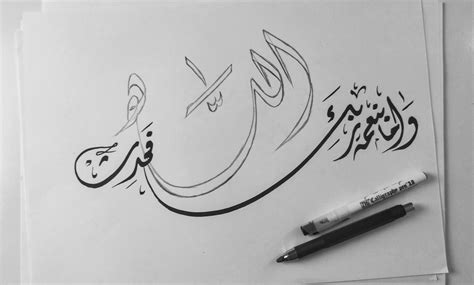 الله
وَأما بنعمة ربكَ فحدث
Calligraphy pen